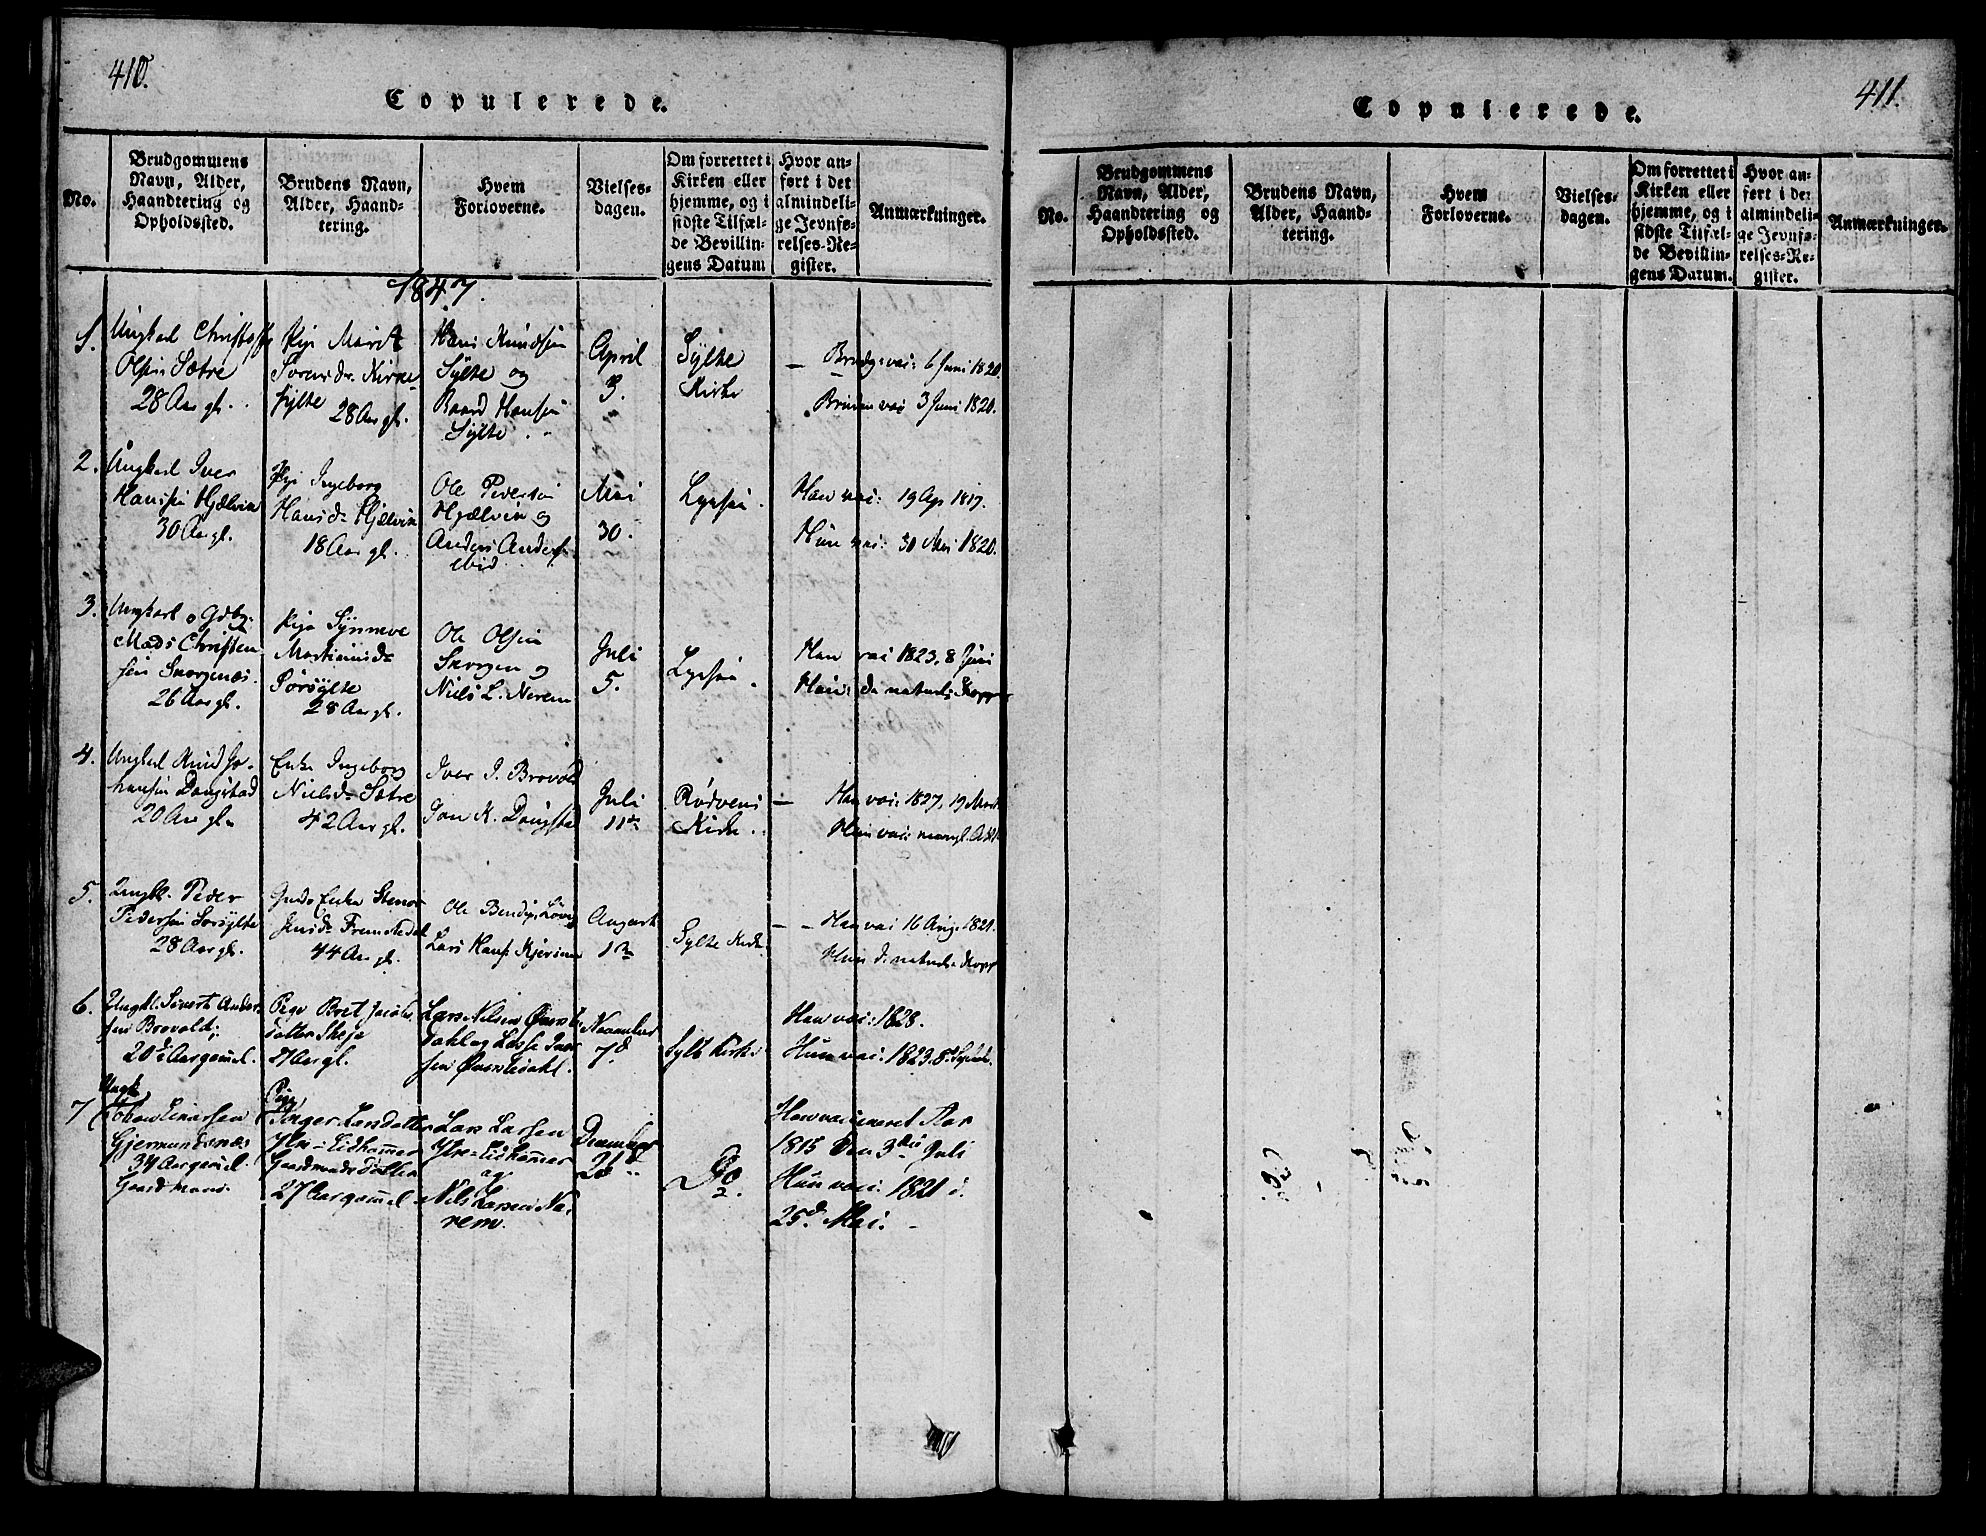 410.
Copulerede.
No.
Brudgommens
Navn, Alder,
Haandtering og
Opholdssted.
Brudens Navn,
Alder, Haand-
tering.
Hvem
Forloverne.
Vielses-
dagen.
Om forrettet i
Kirken eller
hjemme, og i
sidste Tilfæl-
de Bevillin-
gens Datum
Hvor an-
ført i det
almindeli-
ge Jevnfø-
relses-Re-
gister.
Anmærkninger.
1847.
1.
Ungkarl Christoffer
Olsen Sætre
28 Aar gl.
Pige Marit
Kirke-
sylte
28 Aar gl.
Hans Knudsen
Sylte og
Baard Hansen
Sylte
April
3.
Sylte
Kirke
Brudg. vac: 6 Juni 1820.
Bruden vac 3 Juni 1820.
2.
Ungkarl Iver
Hansen Hjelvin
30 Aar gl.
Pige Ingeborg
Hansdr Hjelvin
18 Aar gl.
Ole Pedersen
Hjelvin og
Anders Anders.
ibid.
Mai
30.
Han vac: 19 Ap 1819.
Hun vac: 30 Mai 1820.
3.
Ungkarl og Gdbr.
Mads Christen-
sen Skorgenæs.
26 Aar gl.
Pige Synneve
Sørsylte
28 Aar gl.
Ole Olsen
Skorgen og
Niels L. Nerem
Juli
5.
Han vac 1823, 8 Juni
Hun: de naturl. Kopp
4.
Ungkarl Knud Jo-
hansen Daugstad
20 Aar gl.
Enke Ingeborg
Nielsdr Sætre
42 Aar gl.
Iver I. Brovold
Jon K. Daugstad
Juli
11te
Rødvens
Kirke.
Han vac: 1827, 19 Mart
Hun vac: mangl. Att.
5.
Ungk. Peder
Pedersen Sørsylte
28 Aar gl.
Gmds Enke
Jensdr
44 Aar gl.
Ole
Lars Hans.
August
1ste
Sylte Kirke
Han vac 16 Aug. 1821.
Hun d. naturl. Kopp
6.
Ungkl. Sivert Ander-
sen Brovold;
20de Aar gammel.
Pige Beret Jacobs-
datter Skeje
27 Aar gl.
Lars Nilsen Øvers-
dahl og Lasse Iver-
sen Øverstdahl.
November
7d
Sylte Kirke
Han vac: 1828.
Hun vac: 1823. 8d Septbr.
7
Ungk.
Tobias Einersen
Gjermundsnæs
34 Aar gammel.
Gaardmand.
Pige
Inger Larsdatter
Ytre-Eidhammer
Gaardmands Datter
27 Aar gammel
Lars Larsen
Ytre-Eidhammer
og
Nils Larsen Næ-
rem.
December
28d
Do.
Han vaccineret Aar
1815 den 3die Juli
Hun vac: 1821 d.
25d Mai.
411.
Copulerede.
No.
Brudgommens
Navn, Alder,
Haandtering og
Opholdssted.
Brudens Navn,
Alder, Haand-
tering.
Hvem
Forloverne.
Vielses-
dagen.
Om forrettet i
Kirken eller
hjemme, og i
sidste Tilfæl-
de Bevillin-
gens Datum.
Hvor an-
ført i det
almindeli-
ge Jevnfø-
relses-Re-
gister.
Anmærkninger.